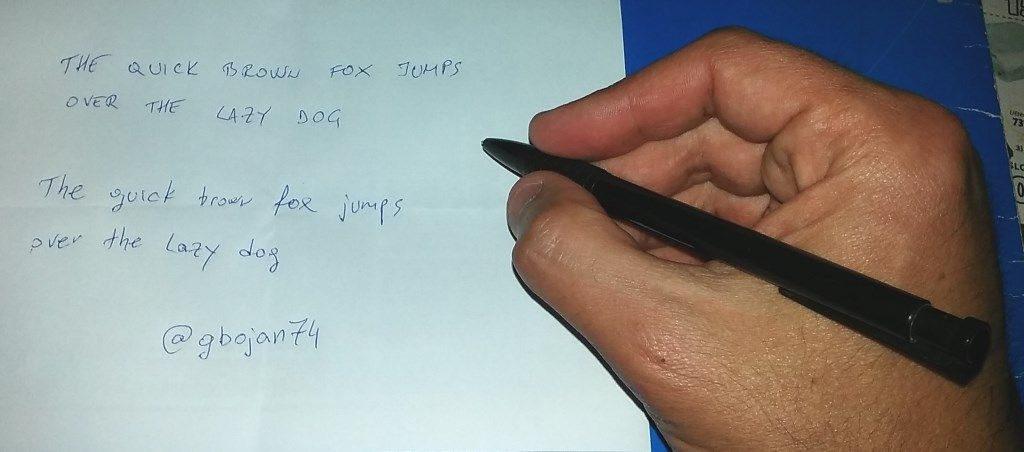 THE QUICK BROWN FOX JUMPS
OVER THE LAZY DOG
The quick brown fox jumps
over the lazy dog
@gbojan74
73